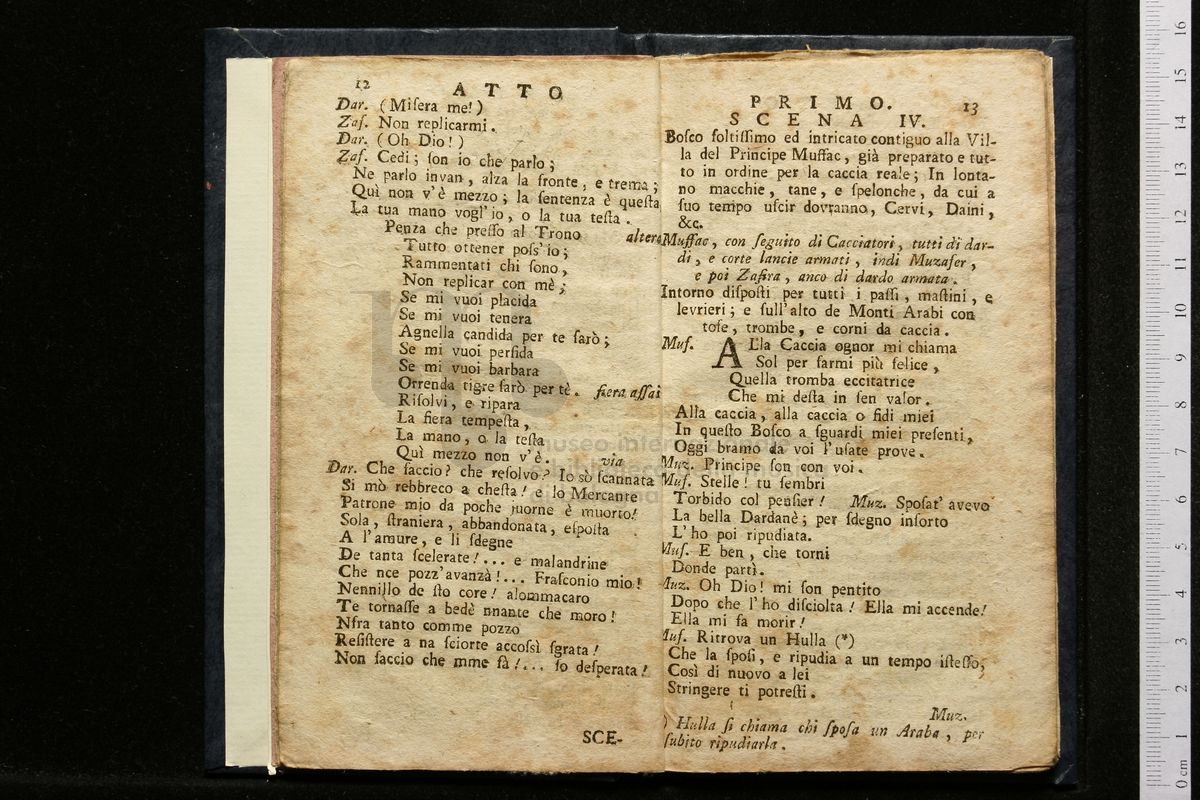 12 ATTO
Dar. (Miſera me!)
Zaf. Non replicarmi.
Dar. (Oh Dio!)
Zaf. Cedi; ſon io che parlo;
Ne parlo invan, alza la fronte, e trema;
Quì non v'è mezzo; la ſentenza è queſta
La tua mano vogl'io, o la tua teſta.
Penza che preſſo al Trono altera
Tutto ottener poſs'io;
Rammentati chi ſono,
Non replicar con mè;
Se mi vuoi placida
Se mi vuoi tenera
Agnella candida per te ſarò;
Se mi vuoi perfida
Se mi vuoi barbara
Orrenda tigre ſarò per tè. fiera aſſai
Riſolvi, e ripara
La fiera tempeſta,
La mano, o la teſta
Quì mezzo non v'è. via
Dar. Che faccio? che reſolvo? Io sò ſcannata
Si mò rebbreco a cheſta! e lo Mercante
Patrone mio da poche juorne è muorto!
Sola, ſtraniera, abbandonata, eſpoſta
A l'amure, e li ſdegne
De tanta ſcelerate!... e malandrine
Che nce pozz'avanzà!... Fraſconio mio!
Nennillo de ſto core! alommacaro
Te tornaſſe a bedè nnante che moro!
Nfra tanto comme pozzo
Reſiſtere a na ſciorte accoſsì ſgrata!
Non faccio che mme fà!... ſo deſperata!
SCE-
PRIMO. 13
SCENA IV.
Boſco foltiſſimo ed intricato contiguo alla Vil-
la del Principe Muſſac, già preparato e tut-
to in ordine per la caccia reale; In lonta-
no macchie, tane, e ſpelonche, da cui a
ſuo tempo uſcir dovranno, Cervi, Daini,
&c.
Muſſac, con ſeguito di Cacciatori, tutti di dar-
di, e corte lancie armati, indi Muzafer,
e poi Zafira, anco di dardo armata.
Intorno diſpoſti per tutti i paſſi, maſtini, e
levrieri; e ſull'alto de Monti Arabi con
tofe, trombe, e corni da caccia.
Muſ. ALla Caccia ognor mi chiama
Sol per farmi più felice,
Quella tromba eccitatrice
Che mi deſta in ſen valor.
Alla caccia, alla caccia o fidi miei
In queſto Boſco a ſguardi miei preſenti,
Oggi bramo da voi l'uſate prove.
Muz. Principe ſon con voi.
Muſ. Stelle! tu ſembri
Torbido col penſier! Muz. Spoſat' avevo
La bella Dardanè; per ſdegno inſorto
L'ho poi ripudiata.
Muſ. E ben, che torni
Donde partì.
Muz. Oh Dio! mi ſon pentito
Dopo che l'ho diſciolta! Ella mi accende!
Ella mi fa morir!
Muſ. Ritrova un Hulla (*)
Che la ſpoſi, e ripudia a un tempo iſteſſo;
Così di nuovo a lei
Stringere ti potreſti.
Muz.
) Hulla ſi chiama chi ſpoſa un Araba, per
ſubito ripudiarla.
museo internazionale
e biblioteca della musica
di bologna
16
15
14
13
12
11
10
9
8
7
6
5
4
3
2
1
0 cm